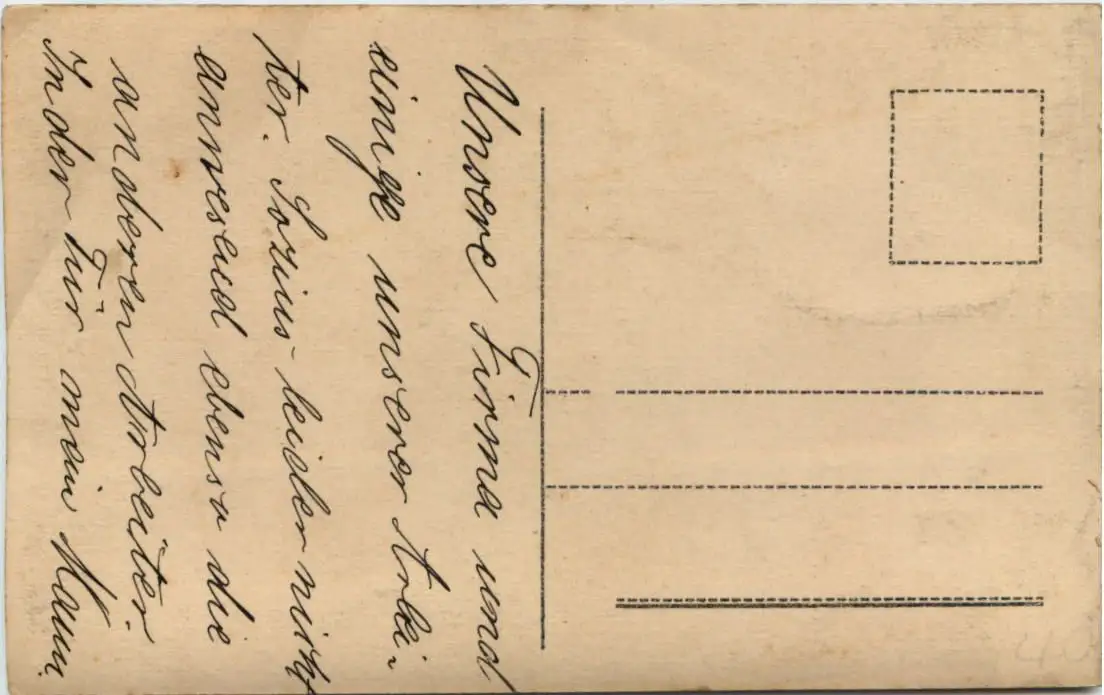 Unsere Firma und
einige unserer Arbei-
ter. Sozius leider nicht
anwesend ebenso die
anderen Arbeiter.
In der Tür mein Mann.